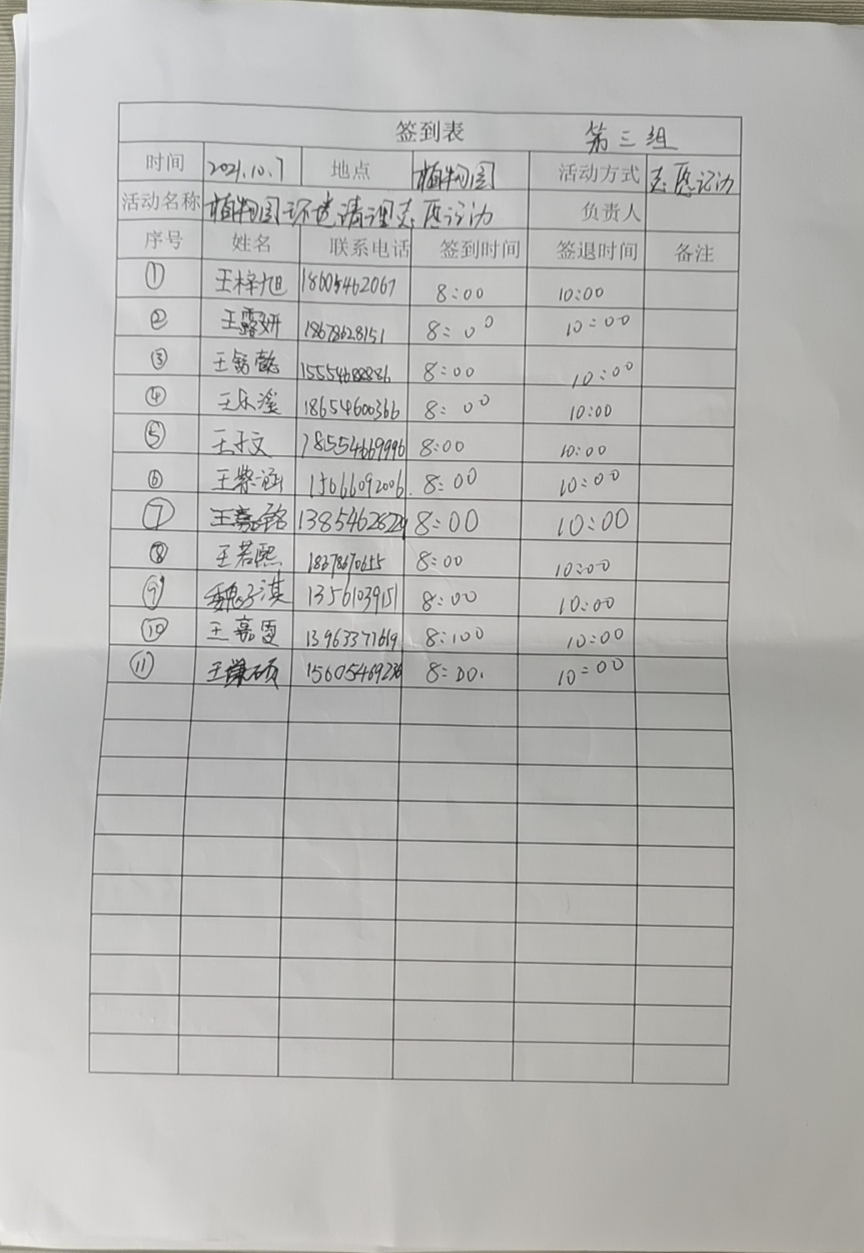 签到表 第三组
时间 2021.10.7 地点 植物园 活动方式 志愿活动
活动名称 植物园环境清理志愿活动 负责人
序号 姓名 联系电话 签到时间 签退时间 备注
① 王梓旭 18605462067 8:00 10:00
② 王露妍 18678628151 8:00 10:00
③ 王铭懿 15554688886 8:00 10:00
④ 王乐溪 18654600366 8:00 10:00
⑤ 王子文 18554669996 8:00 10:00
⑥ 王紫涵 15066092006. 8:00 10:00
⑦ 王嘉铭 8:00 10:00
⑧ 王若熙 18678670655 8:00 10:00
⑨ 魏子淇 13561039151 8:00 10:00
⑩ 王嘉雯 13963371619 8:100 10:00
⑪ 8:00. 10:00